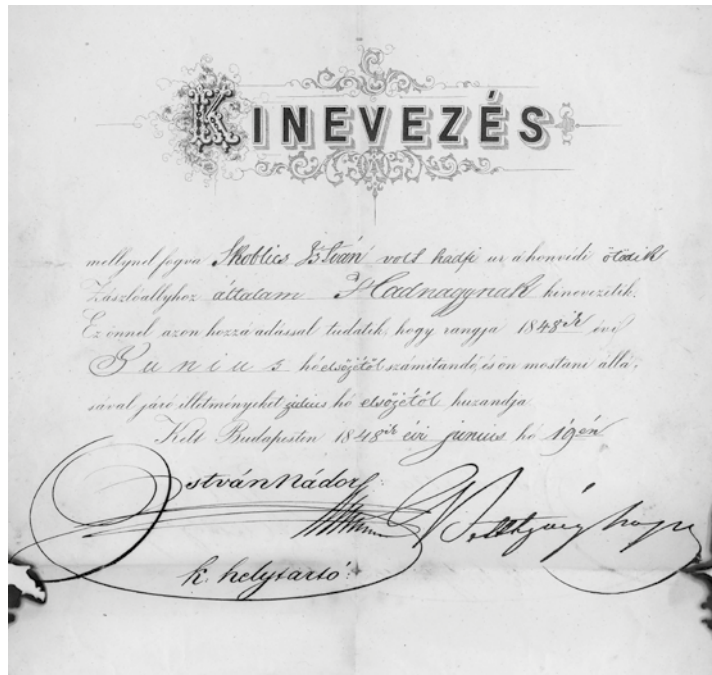 KINEVEZÉS
mellynel fogva Skoblics István volt hadfi ur a honvédi ötödik
Zászlóallyhoz általam Hadnagynak kineveztetik.
Ez önnel azon hozzáadással tudatik, hogy rangja 1848ik évi
Junius hó elsőjétől számitandó, és ön mostani állá,
sával járó illetményeket julius hó elsőjétől huzandja
Kelt Budapesten 1848ik évi junius hó 19én
István Nádor
k. helytartó